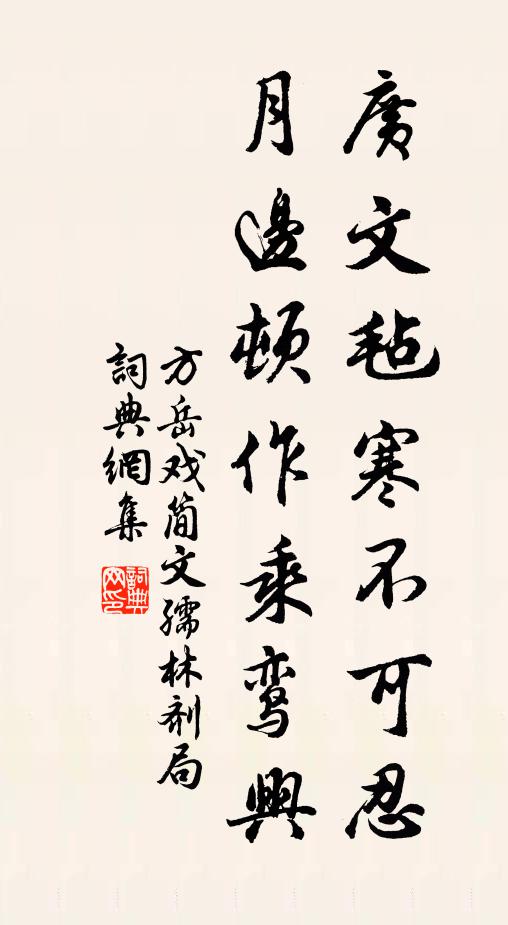 廣文毡寒不可忍
月邊頓作乘鸾興
方岳戏简文孺林剂局
詞典網集
詞典
网印